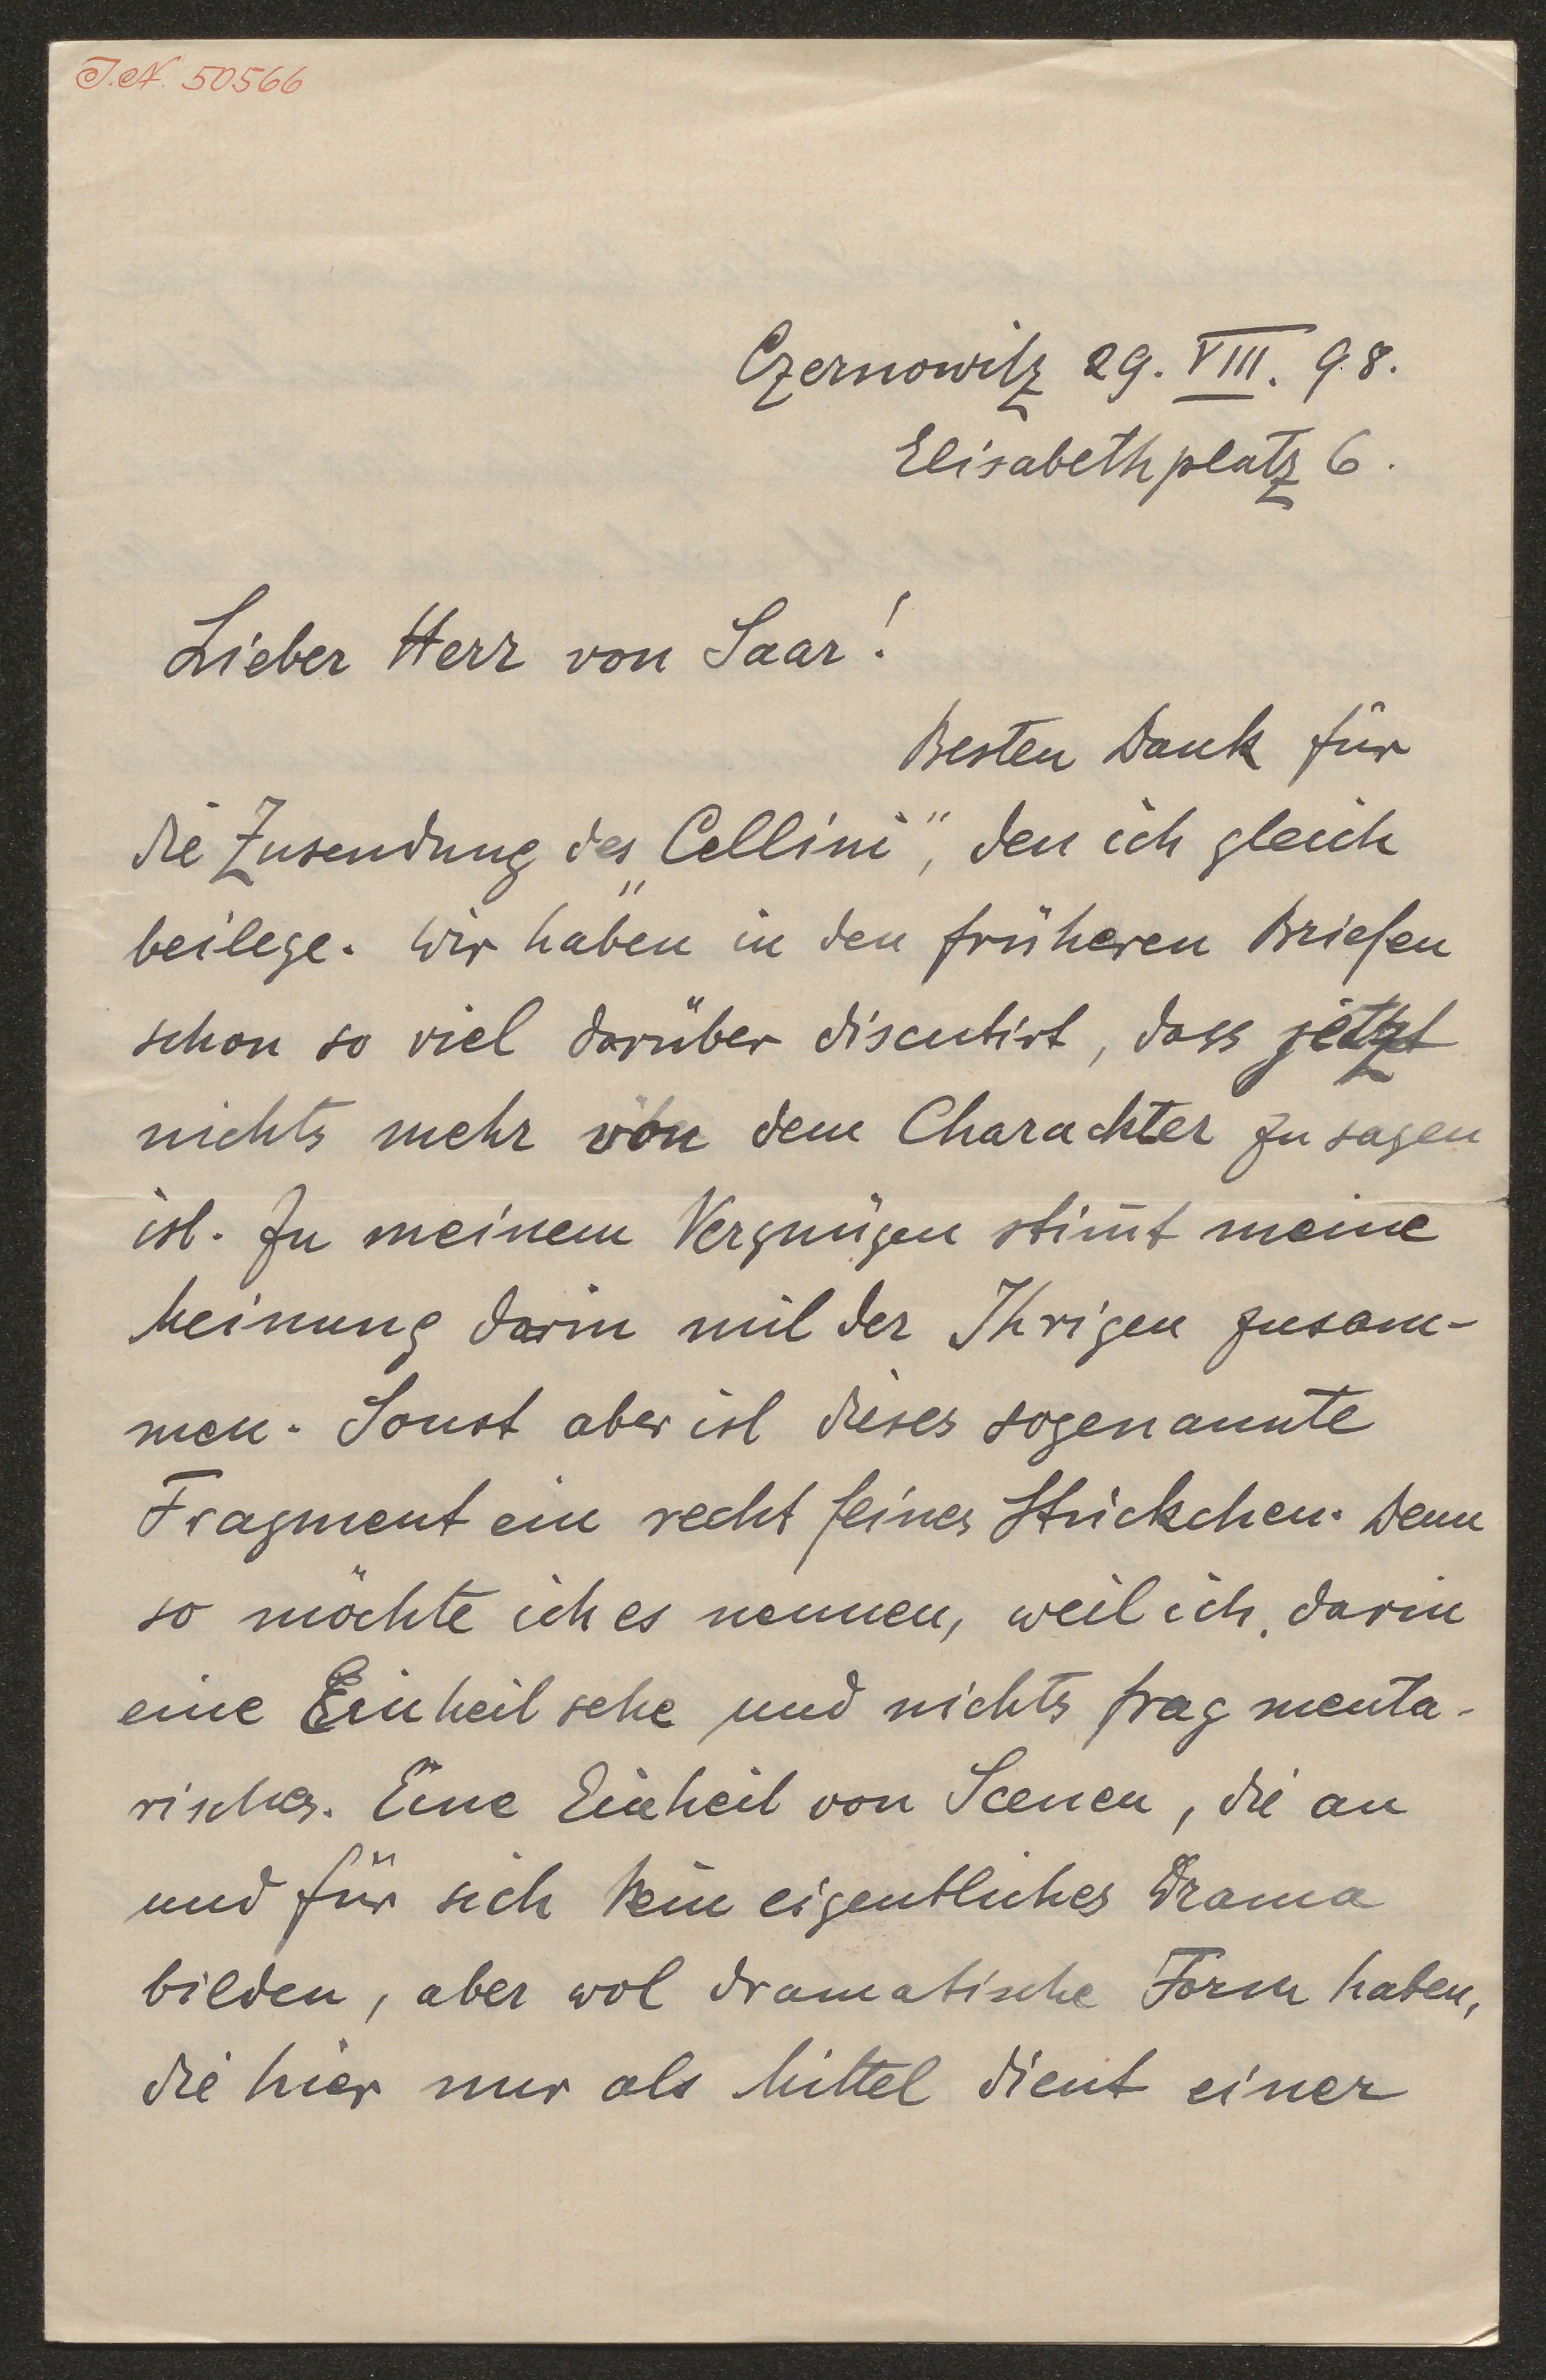 J.N. 50566
Czernowitz 29. VIII. 98.
Elisabethplatz 6.
Lieber Herr von Saar!
Besten Dank für
die Zusendung des „Cellini", den ich gleich
beilege. Wir haben in den früheren Briefen
schon so viel darüber discutirt, dass jetzt
nichts mehr von dem Charackter zu sagen
ist. Zu meinem Vergnügen stim̄t meine
Meinung darin mit der Ihrigen zusam-
men. Sonst aber ist dieses sogenannte
Fragment ein recht feines Stückchen. Denn
so möchte ich es nennen, weil ich darin
eine Einheit sehe und nichts fragmenta-
risches. Eine Einheit von Scenen, die an
und für sich kein eigentliches Drama
bilden, aber wol dramatische Form haben,
die hier nur als Mittel dient einer